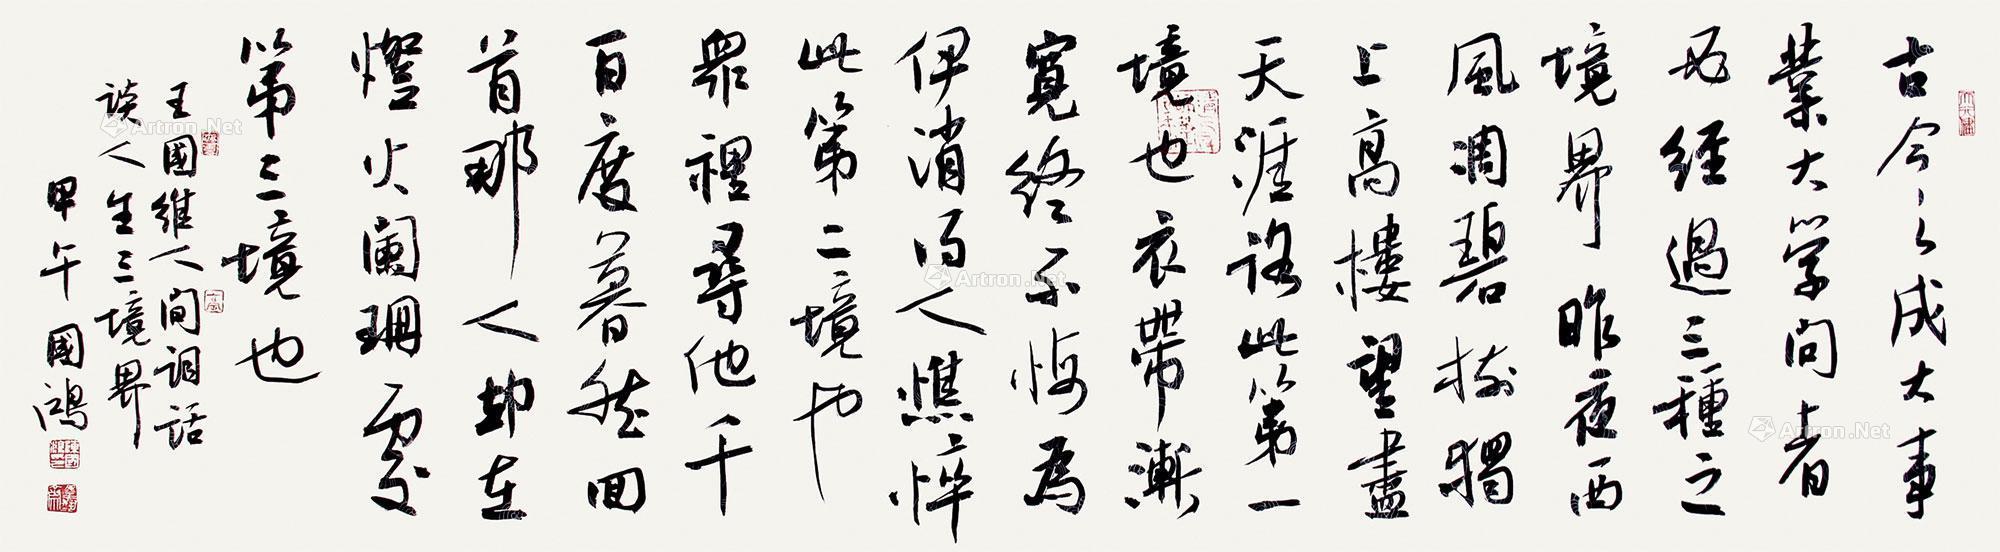 古今之成大事
業大学問者
必經過三種之
境界昨夜西
風凋碧樹獨
上高樓望盡
天涯路此第一
境也衣帶漸
寬終不悔為
伊消得人憔悴
此第二境也
眾裡尋他千
百度驀然回
首那人却在
燈火闌珊處
第三境也
王國維人間詞話
談人生三境界
甲午國鴻
Artron.Net
Artron.Net
Artron.Net
Artron.Net